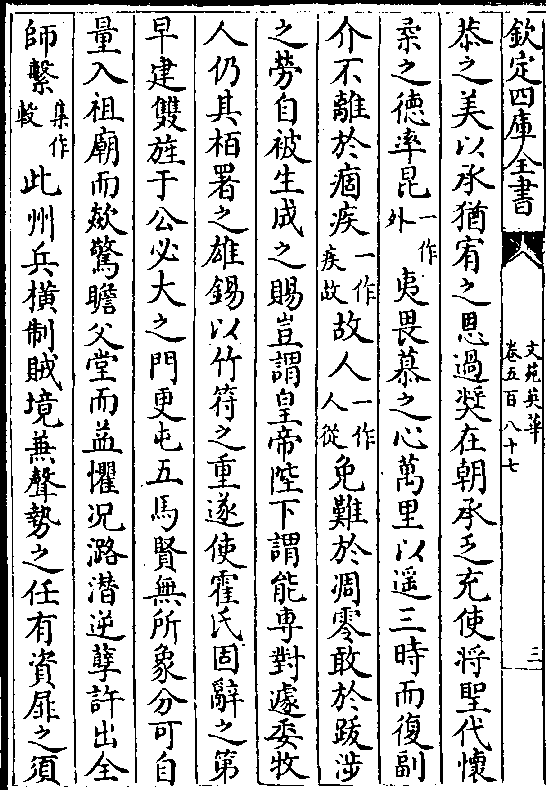 欽定四庫全書
文苑英華
卷五百八十七
三
恭之美以承猶宥之恩過奬在朝承乏充使将聖代懷
柔之德率昆一作外夷畏慕之心萬里以遥三時而復副
介不離於痼疾一作疾故故人一作人從免難於凋零敢於跋涉
之勞自被生成之賜豈謂皇帝陛下謂能専對遽委牧
人仍其栢署之雄錫以竹符之重遂使霍氏固辭之第
早建雙旌于公必大之門更屯五馬賢無所象分可自
量入祖廟而欻驚瞻父堂而益懼况潞潜逆孽許出全
師繫集作較此州兵横制賊境兼聲勢之任有資屝之須